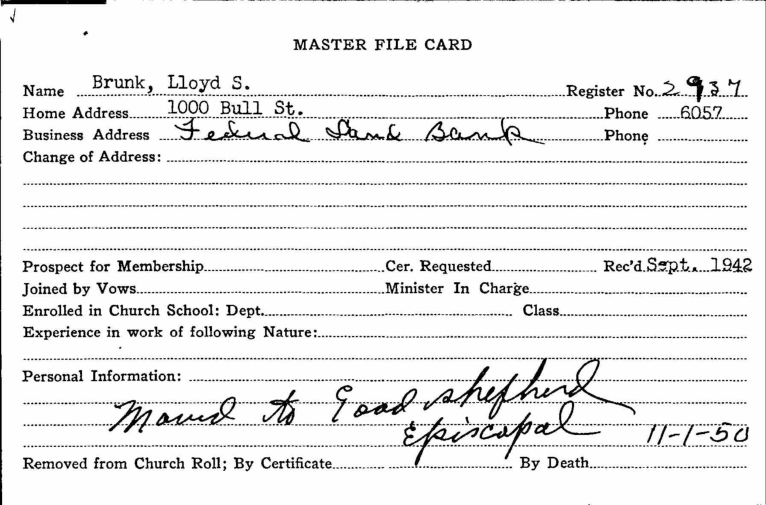 MASTER FILE CARD
Name Brunk, Lloyd S. Register No. 2937
Home Address 1000 Bull St. Phone 6057
Business Address Federal Land Bank Phone
Change of Address:
Prospect for Membership Cer. Requested Rec'd Sept. 1942
Joined by Vows Minister In Charge
Enrolled in Church School: Dept. Class
Experience in work of following Nature:
Personal Information:
Moved to Good Shepherd
Episcopal 11-1-50
Removed from Church Roll; By Certificate By Death